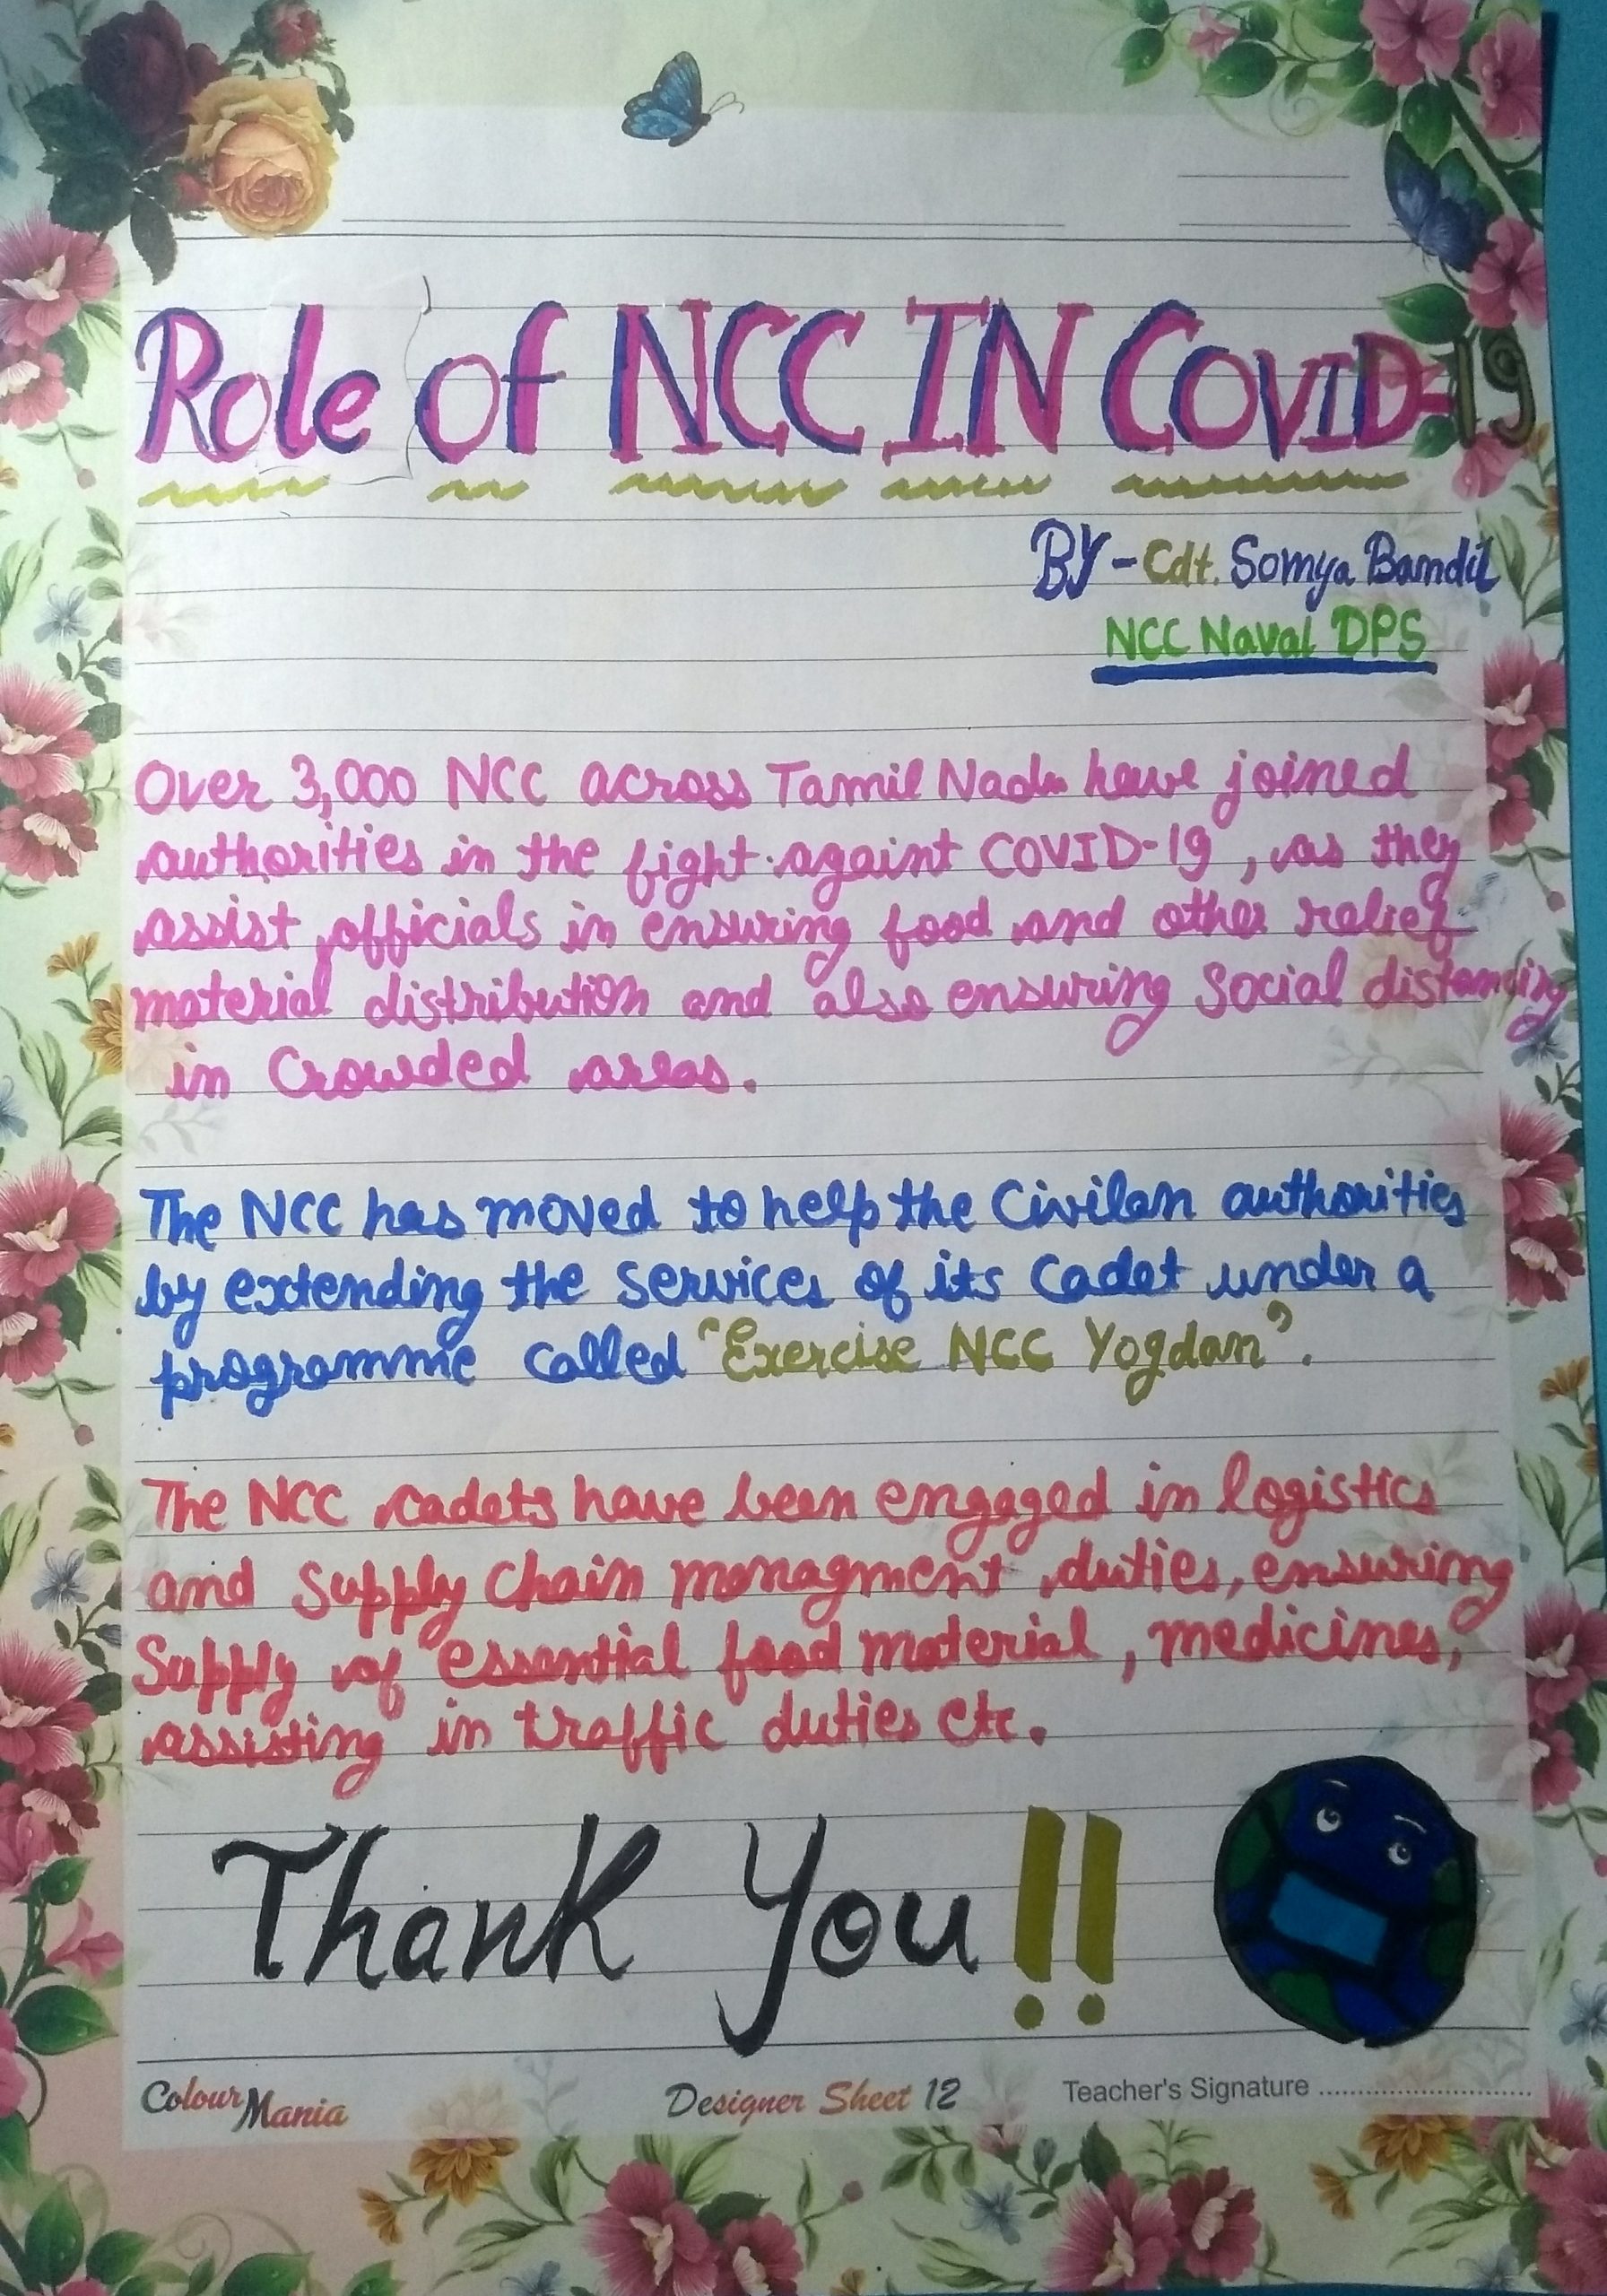 Role of NCC IN COVID-19
BY - Cdt. Somya Bandil
NCC Naval DPS
Over 3,000 NCC across Tamil Nadu have joined
authorities in the fight againt COVID-19, as they
assist officials in ensuring food and other relief
material distribution and also ensuring Social distancing
in Crowded areas.
The NCC has moved to help the Civilan authorities
by extending the services of its Cadet under a
programme called "Exercise NCC Yogdan".
The NCC cadets have been engaged in logistics
and Supply Chain managment duties, ensuring
Supply of essential food material, medicines,
assisting in traffic duties etc.
Thank You!!
Colour Mania
Designer Sheet 12
Teacher's Signature ..............................